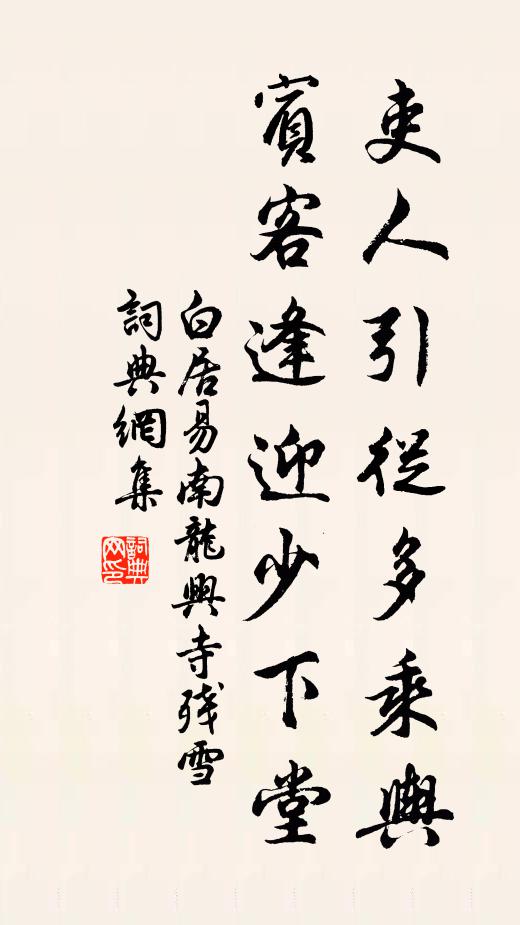 吏人引從多乘輿
賓客逢迎少下堂
白居易南龍興寺殘雪
詞典網集
詞典网印